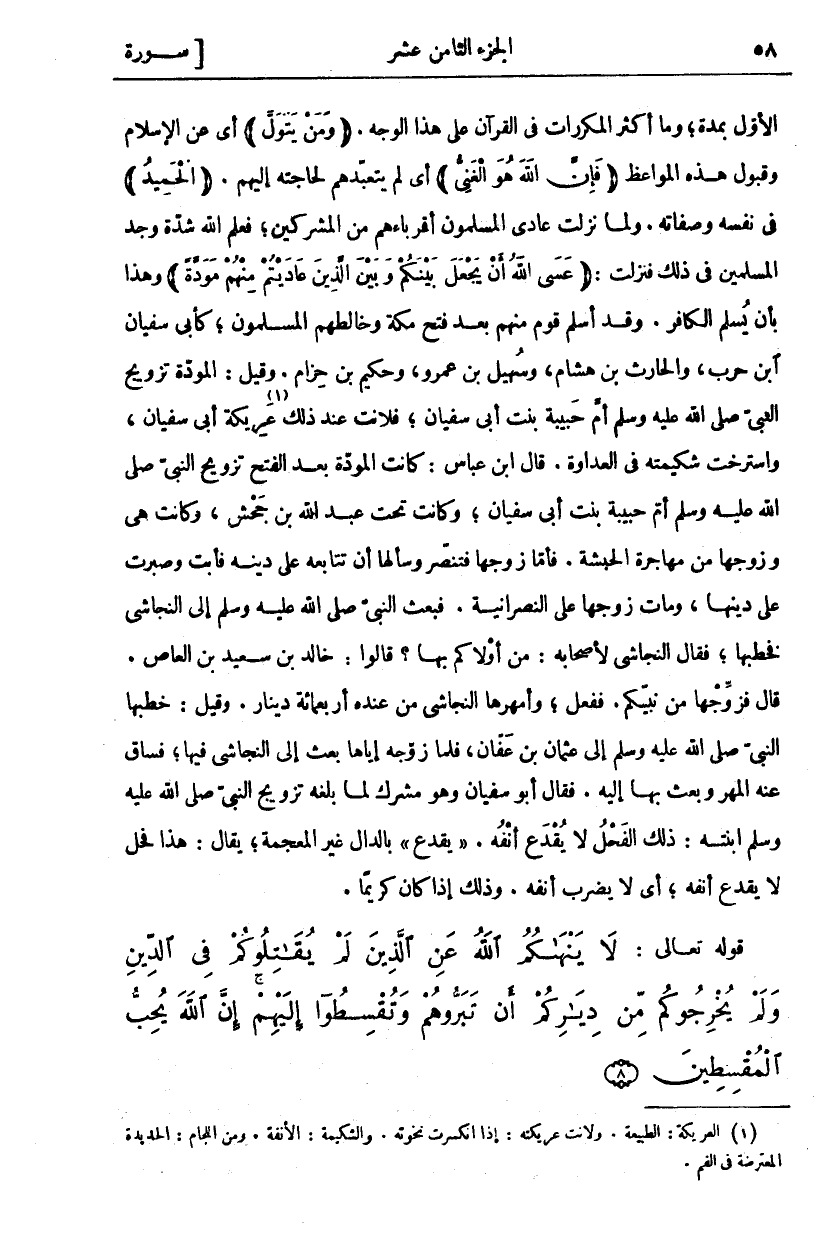 ٥٨ الجزء الثامن عشر [ سـورة
الأوّل بمدة؛ وما أكثر المكررات فى القرآن على هذا الوجه . ﴿ وَمَنْ يَتَوَلَّ ﴾ أى عن الإسلام
وقبول هـذه المواعظ ﴿ فَإِنَّ اللَّهَ هُوَ الْغَنِىُّ ﴾ أى لم يتعبّدهم لحاجته إليهم . ﴿ الْحَمِيدُ ﴾
فى نفسه وصفاته . ولمـا نزلت عادى المسلمون أقرباءهم من المشركين؛ فعلم الله شدّة وجد
المسلمين فى ذلك فنزلت : ﴿ عَسَى اللَّهُ أَنْ يَجْعَلَ بَيْنَكُمْ وَبَيْنَ الَّذِينَ عَادَيْتُمْ مِنْهُمْ مَوَدَّةً ﴾ وهذا
بأن يُسلم الكافر . وقـد أسلم قوم منهم بعـد فتح مكة وخالطهم المسـلمون ؛ كأبى سفيان
ٱبن حرب، والحارث بن هشام، وسُهيل بن عمرو، وحكيم بن حِزام . وقيل : المودّة تزويج
النبىّ صلى الله عليه وسلم أمَّ حَبيبة بنت أبى سفيان ؛ فلانت عند ذلك عَرِيكة (١) أبى سفيان ،
واسترخت شكيمته فى العداوة . قال ابن عباس : كانت المودّة بعـد الفتح تزويج النبىّ صلى
الله عليـه وسلم أمّ حبيبة بنت أبى سفيان ؛ وكانت تحت عبـد الله بن جَحْش ، وكانت هى
وزوجها من مهاجرة الحبشة . فأمّا زوجها فتنصّر وسألها أن تتابعه على دينـه فأبت وصبرت
على دينهـا ، ومات زوجها على النصرانيـة . فبعث النبىّ صلى الله عليـه وسلم إلى النجاشى
فخطبها ؛ فقال النجاشى لأصحابه : من أوْلاكم بهـا ؟ قالوا : خالد بن سـعيد بن العاص .
قال فزوِّجْها من نبيّكم. ففعل ؛ وأمهرها النجاشى من عنده أربعمائة دينار . وقيل : خطبها
النبىّ صلى الله عليه وسلم إلى عثمان بن عَفّان، فلما زوّجه إياها بعث إلى النجاشى فيها؛ فساق
عنه المهر وبعث بهـا إليه . فقال أبو سفيان وهو مشرك لمـا بلغه تزويج النبىّ صلى الله عليه
وسلم ابنتـه : ذلك الفَحْلُ لا يُقْدَع أنْفُه . « يقدع » بالدال غير المعجمة؛ يقال : هذا فحل
لا يقدع أنفه ؛ أى لا يضرب أنفه . وذلك إذا كان كريمًا .
قوله تعـالى : لَا يَنْهَىٰكُمُ ٱللَّهُ عَنِ ٱلَّذِينَ لَمْ يُقَـٰتِلُوكُمْ فِى ٱلدِّينِ
وَلَمْ يُخْرِجُوكُم مِّن دِيَـٰرِكُمْ أَن تَبَرُّوهُمْ وَتُقْسِطُوٓا إِلَيْهِمْ ۚ إِنَّ ٱللَّهَ يُحِبُّ
ٱلْمُقْسِطِينَ ٨
(١) العريكة : الطبيعة . ولانت عريكته : إذا انكسرت نخوته . والشكيمة : الأنفة . ومن اللجام : الحديدة
المعترضة فى الفم .